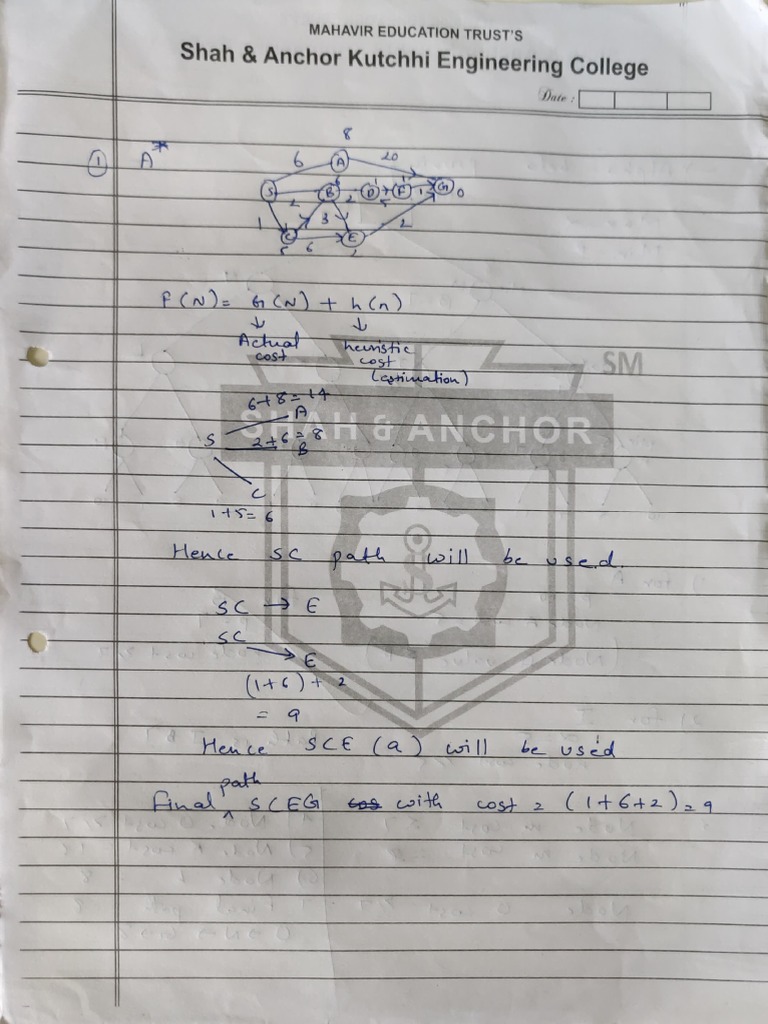 MAHAVIR EDUCATION TRUST'S
Shah & Anchor Kutchhi Engineering College
Date :
1 A*
8
6 A 20
S B D F G 0
2 2 1
1 3 2
C 6 E
5
F(N) = G(N) + h(n)
↓ ↓
Actual heuristic
cost cost
(estimation)
SM
6+8=14
A
SHAH & ANCHOR
S 2+6=8
B
C
1+5=6
Hence SC path will be used.
SC → E
SC
E
(1+6)+2
= 9
Hence SCE (9) will be used
path
Final ^ SCEG with cost = (1+6+2)=9